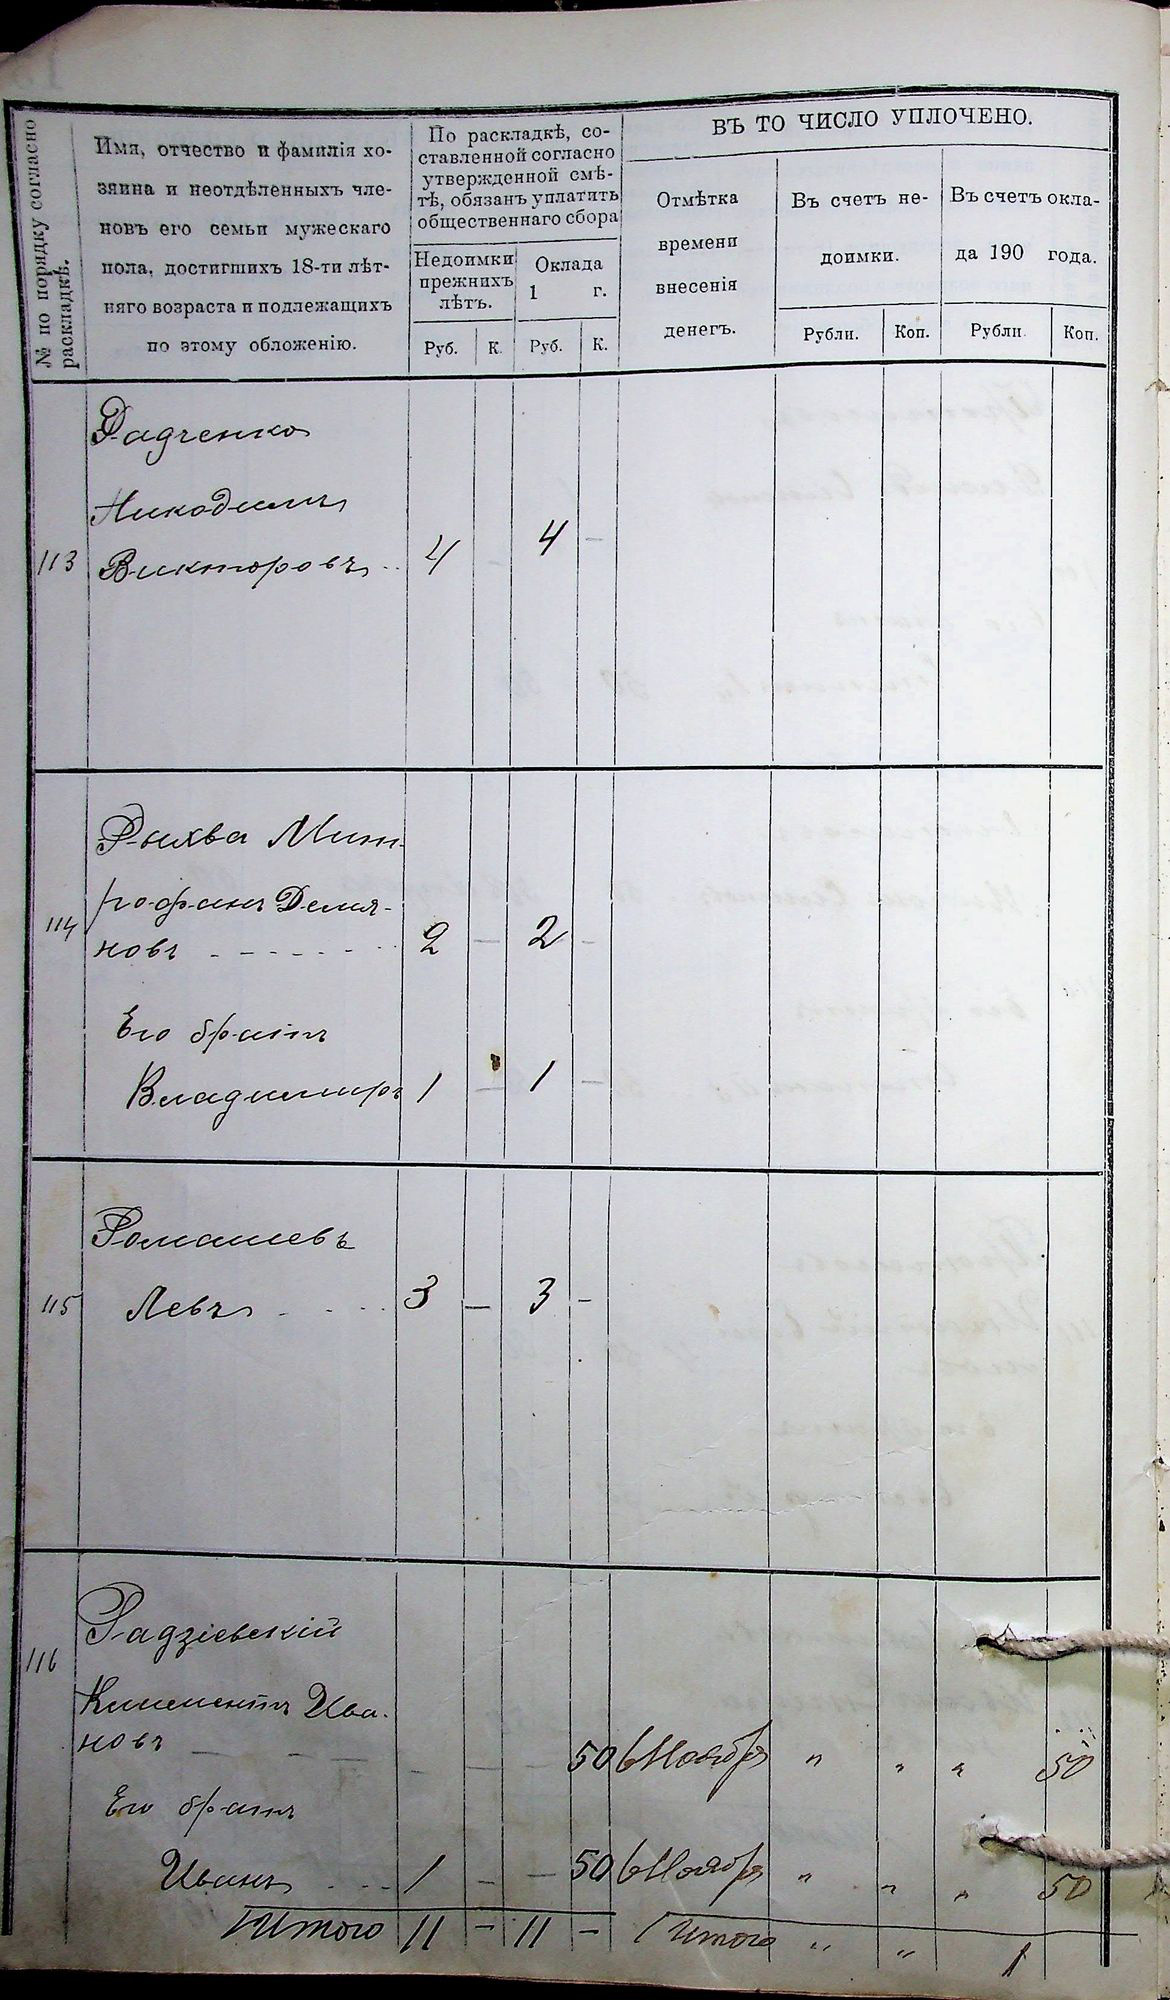 № по порядку согласно
раскладкѣ.
Имя, отчество и фамилія хо-
зяина и неотдѣленныхъ чле-
новъ его семьи мужескаго
пола, достигшихъ 18-ти лѣт-
няго возраста и подлежащихъ
по этому обложенію.
По раскладкѣ, со-
ставленной согласно
утвержденной смѣ-
тѣ, обязанъ уплатить
общественнаго сбора
Недоимки
прежнихъ
лѣтъ.
Оклада
1 г.
Руб. К. Руб. К.
ВЪ ТО ЧИСЛО УПЛОЧЕНО.
Отмѣтка
времени
внесенія
денегъ.
Въ счетъ не-
доимки.
Въ счетъ окла-
да 190 года.
Рубли. Коп. Рубли Коп.
Радченко
Никодимъ
113 Викторовъ 4 - 4 -
Рыхва Мит-
рофанъ Демья-
114 новъ - - - - - 2 - 2 -
Его братъ
Владимиръ 1 - 1 -
Ромашевъ
115 Левъ - - - 3 - 3 -
Радзіевскій
116
Климентъ Ива-
новъ - - - - - - 50 6 Ноября " " " 50
Его братъ
Иванъ - - 1 - - 50 6 Ноября " " " 50
Итого 11 - 11 - Итого " " 1